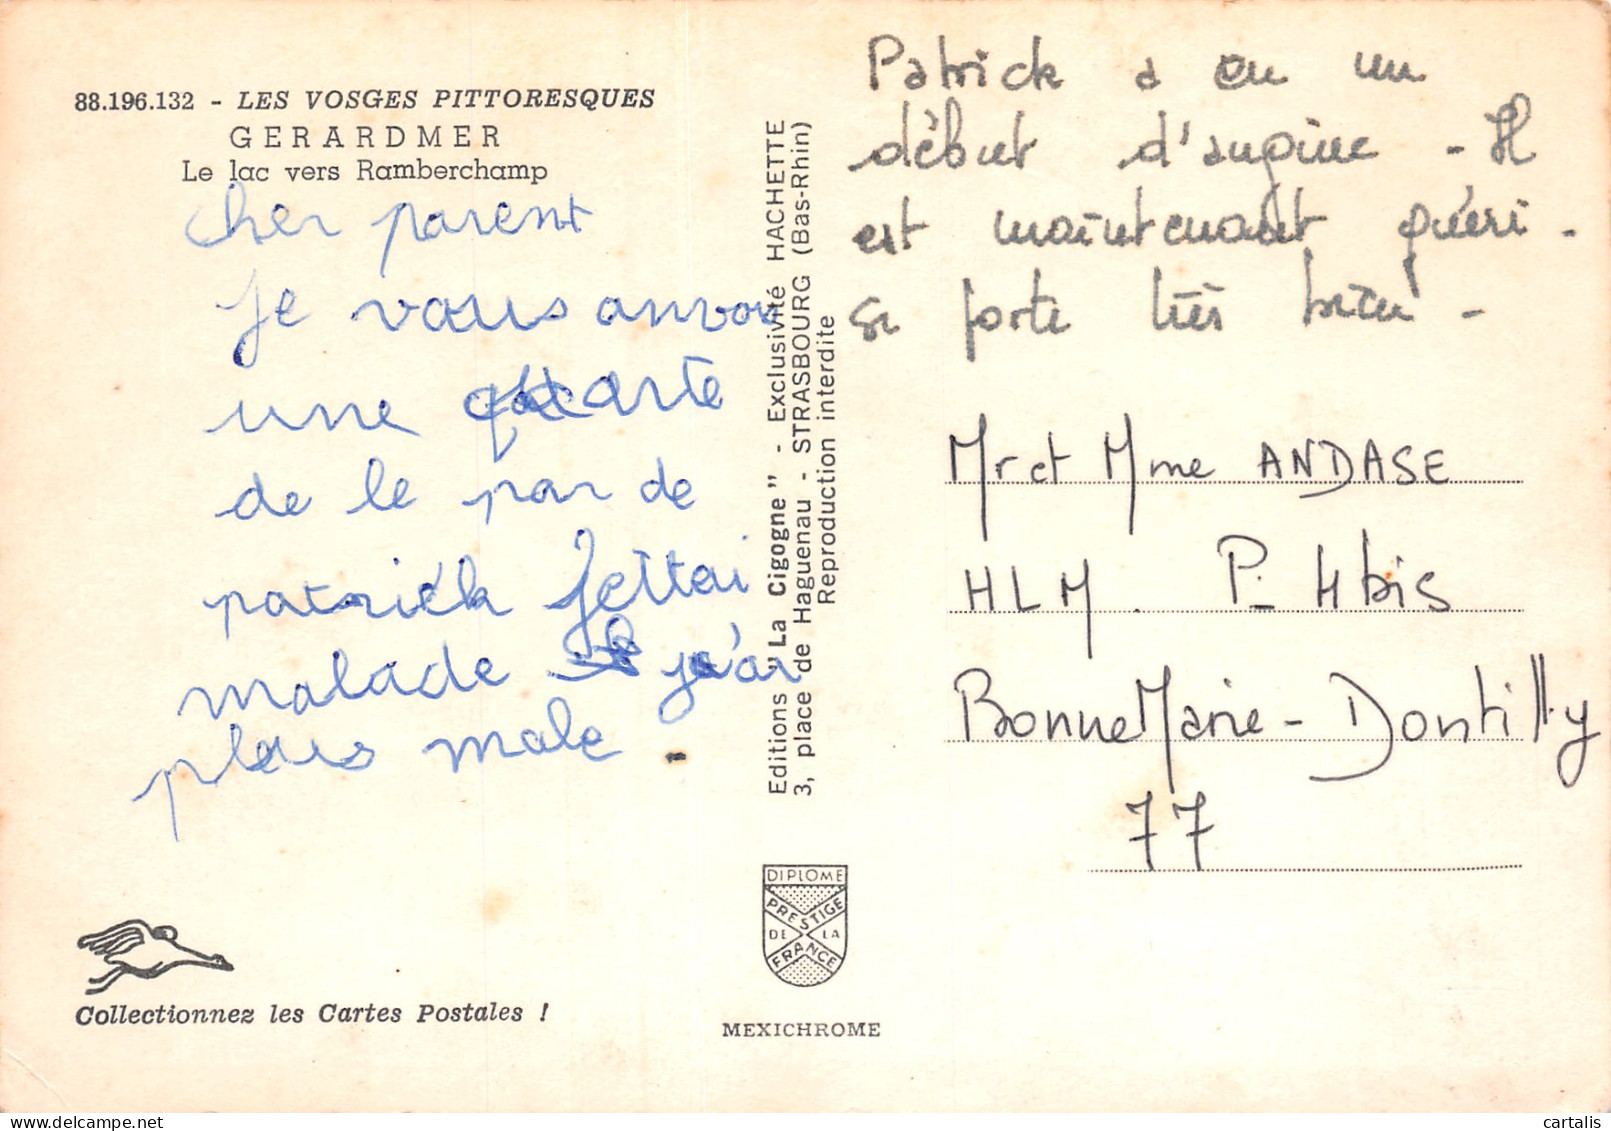 88.196.132 - LES VOSGES PITTORESQUES
GERARDMER
Le lac vers Ramberchamp
cher parent
je vous anvoi
une carte
de le par de
patrick jettai
malade je j'ai
plus male.
Editions "La Cigogne" - Exclusivité HACHETTE
3, place de Haguenau - STRASBOURG (Bas-Rhin)
Reproduction interdite
Patrick a eu un
début d'angine - Il
est maintenant guéri -
se porte très bien -
Mr et Mme ANDASE
HLM. P. 4bis
BonneMarie - Dontilly
77
DIPLOME
PRESTIGE
DE LA
FRANCE
Collectionnez les Cartes Postales !
MEXICHROME
cartalis